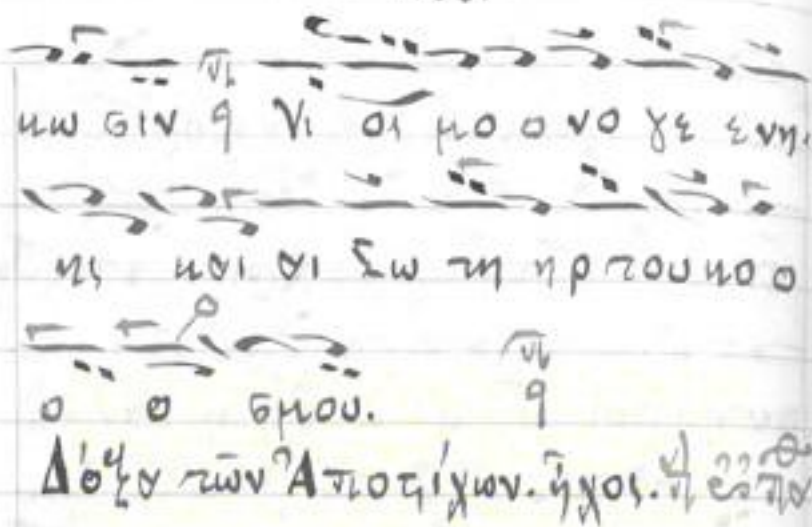 κω σιν q Νι οι μο ο νο γε ε νη.
ης και αι Σω τη η ρ του κο ο
ο ο σμου. q
Δόξα τῶν Ἀποστίχων. ἦχος.